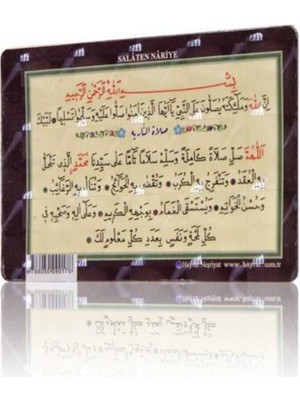 SALÂTEN NÂRİYE
بِسْمِ اللهِ الرَّحْمٰنِ الرَّحِيمِ
اِنَّ اللهَ وَمَلٰئِكَتَهُ يُصَلُّونَ عَلَى النَّبِيِّ يَا اَيُّهَا الَّذِينَ اٰمَنُوا صَلُّوا عَلَيْهِ وَسَلِّمُوا تَسْلِيمًا لَبَّيْكَ
صَلَاةُ النَّارِيَةِ
اَللّٰهُمَّ صَلِّ صَلَاةً كَامِلَةً وَسَلِّمْ سَلَامًا تَامًّا عَلَى سَيِّدِنَا مُحَمَّدٍ الَّذِي تَنْحَلُّ
بِهِ الْعُقَدُ وَتَنْفَرِجُ بِهِ الْكُرَبُ وَتُقْضَى بِهِ الْحَوَائِجُ وَتُنَالُ بِهِ الرَّغَائِبُ
وَحُسْنُ الْخَوَاتِمِ وَيُسْتَسْقَى الْغَمَامُ بِوَجْهِهِ الْكَرِيمِ وَعَلَى اٰلِهِ وَصَحْبِهِ فِي
كُلِّ لَمْحَةٍ وَنَفَسٍ بِعَدَدِ كُلِّ مَعْلُومٍ لَكَ